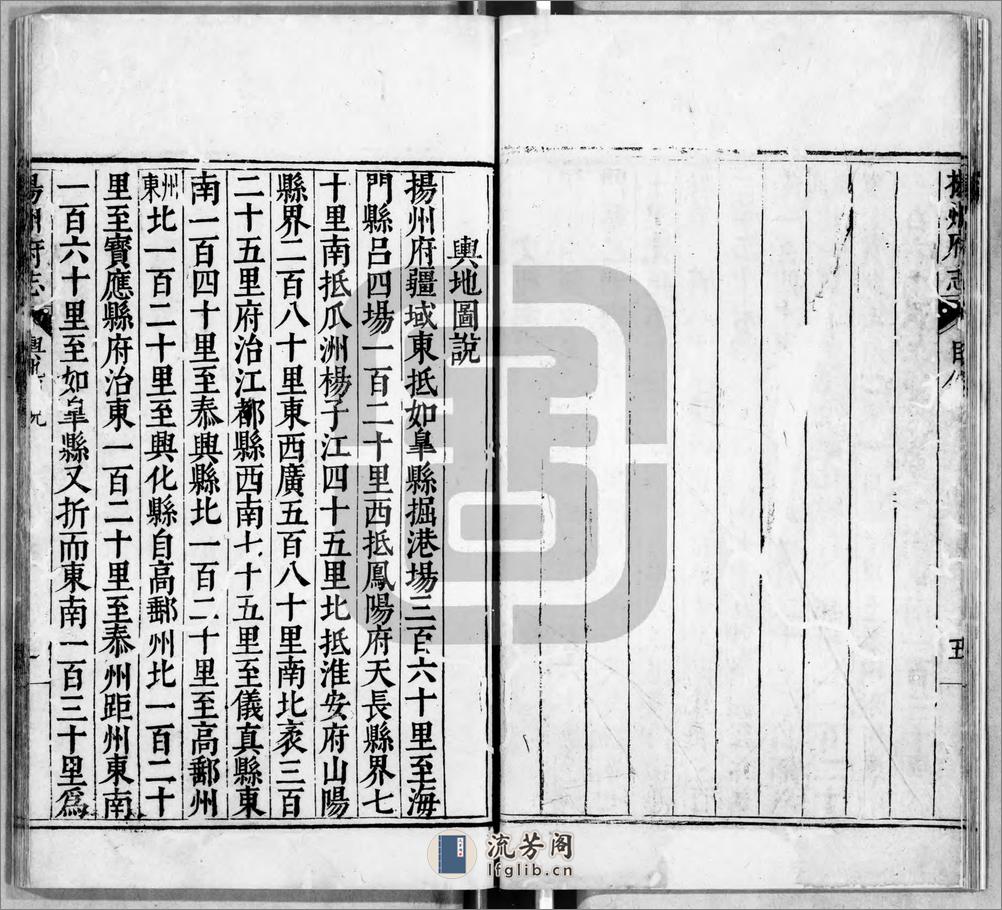 揚州府志
五
輿地圖說
揚州府疆域東抵如臯縣掘港場三百六十里至海
門縣呂四場一百二十里西抵鳳陽府天長縣界七
十里南抵瓜洲楊子江四十五里北抵淮安府山陽
縣界二百八十里東西廣五百八十里南北袤三百
二十五里府治江都縣西南七十五里至儀真縣東
南一百四十里至泰興縣北一百二十里至高郵州
州東北一百二十里至興化縣自高郵州北一百二十
里至寶應縣府治東一百二十里至泰州距州東南
一百六十里至如臯縣又折而東南一百三十里爲
揚州府志
流芳阁
lfglib.cn